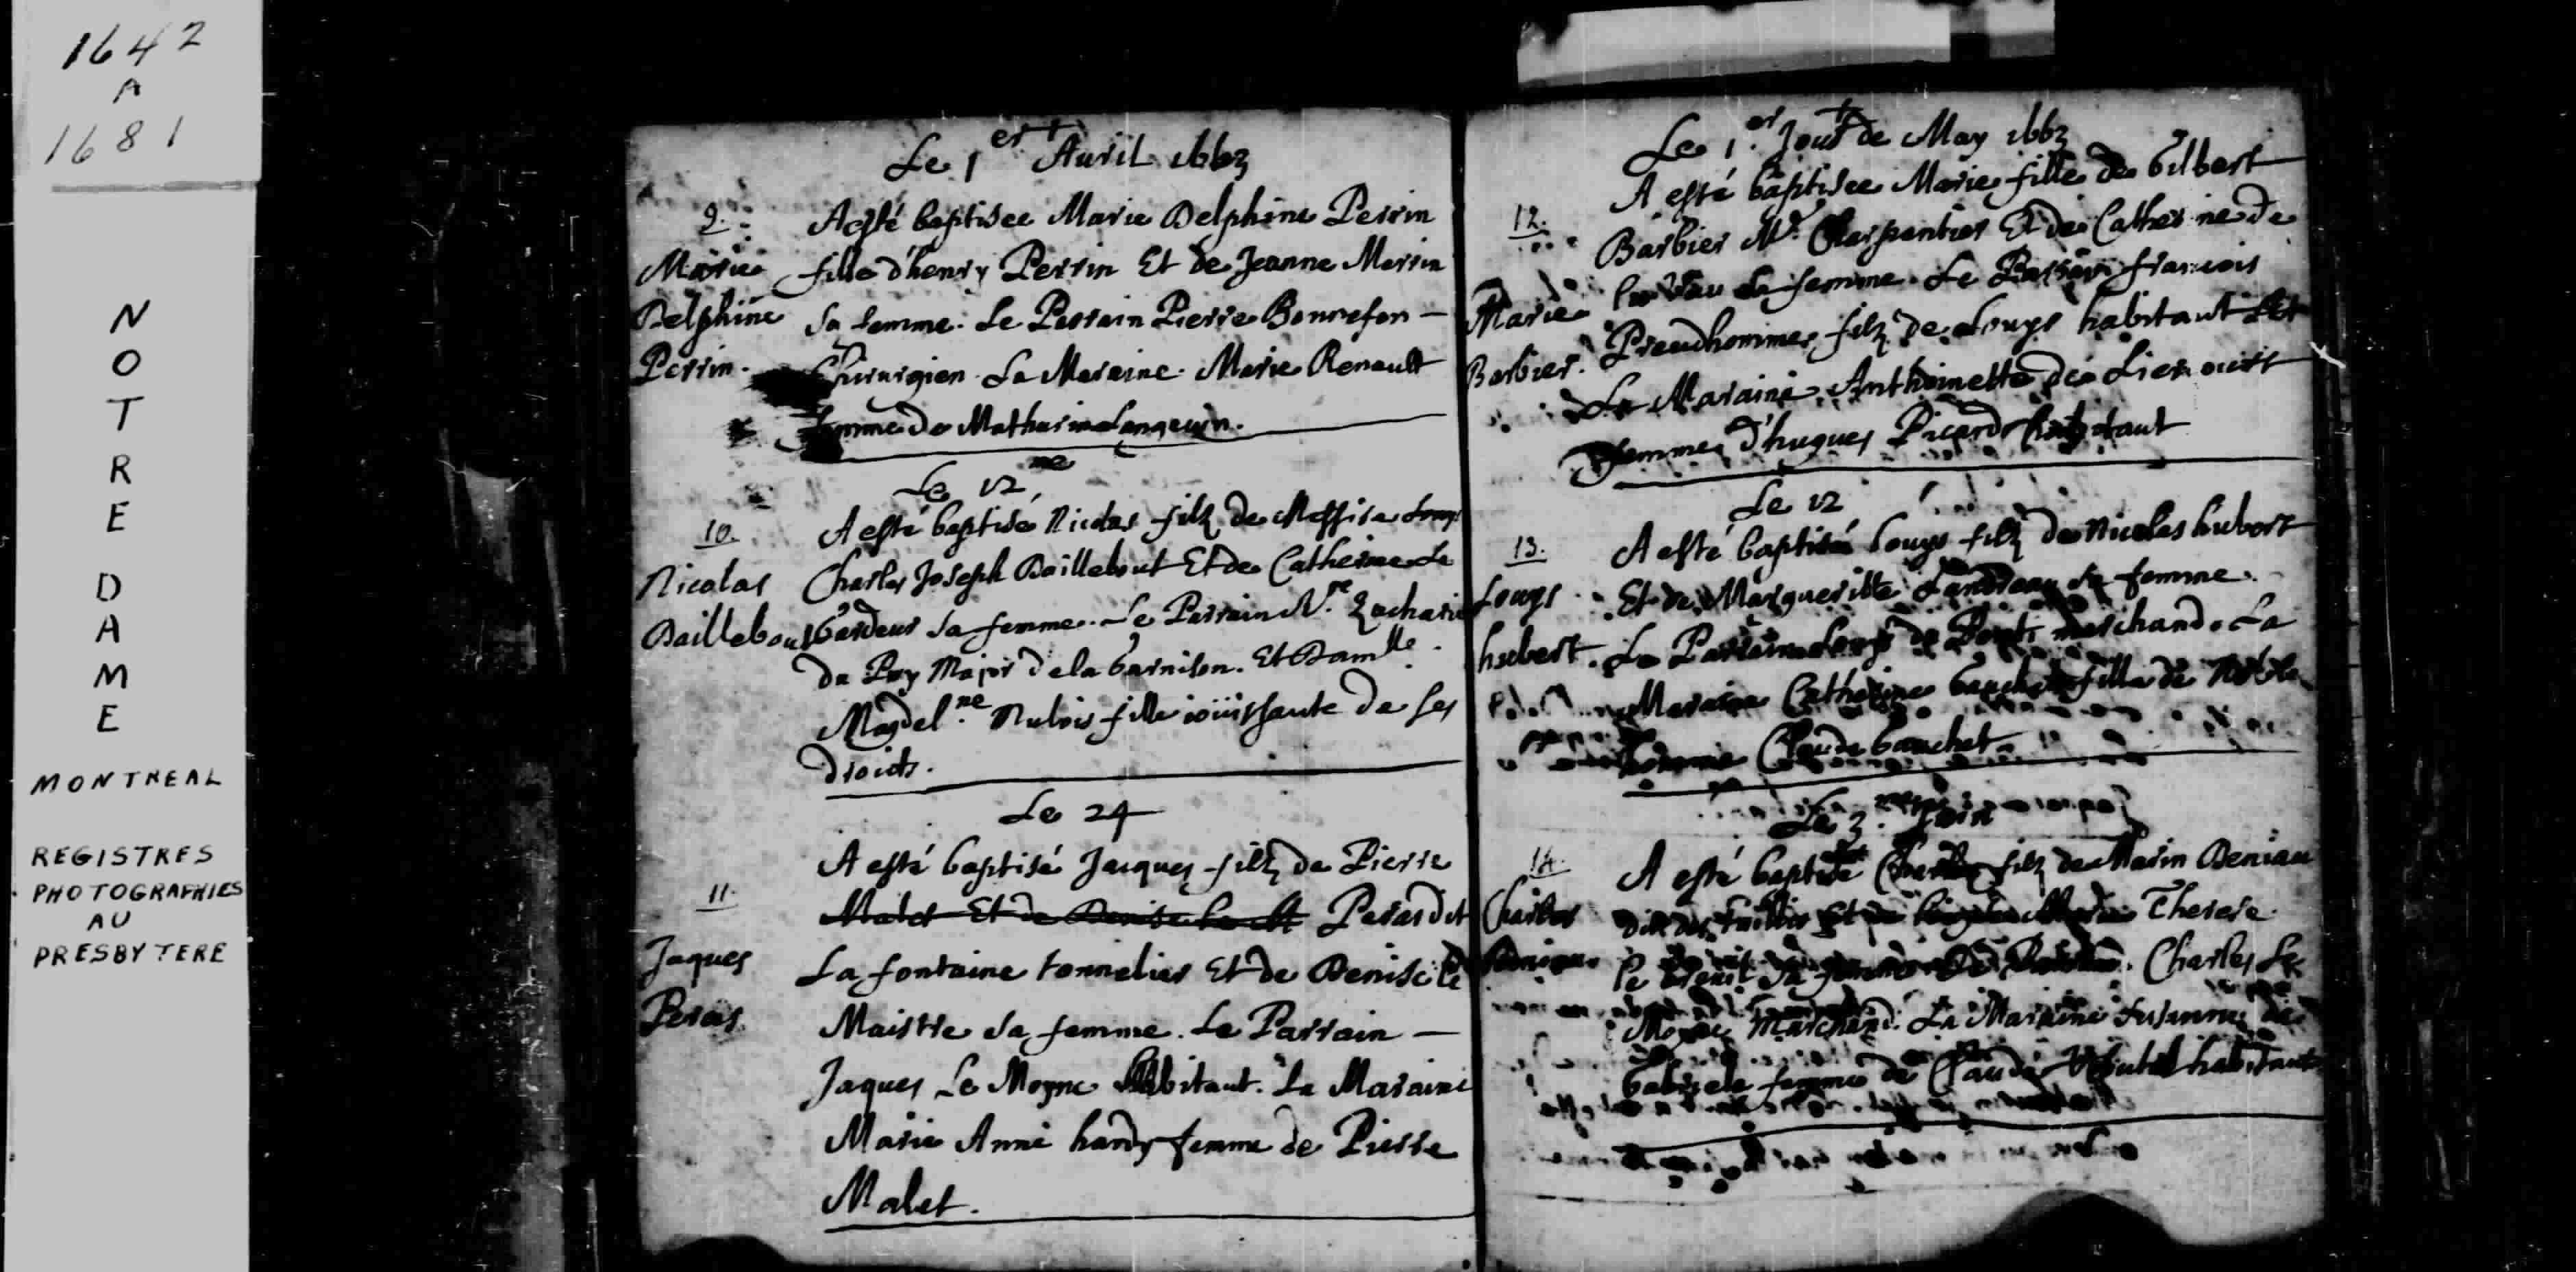 1642
A
1681
NOTRE
DAME
MONTREAL
REGISTRES
PHOTOGRAPHIES
AU
PRESBYTERE
Le 1er Auril 1663
9.
Marie
Delphine
Perrin.
A esté baptisee Marie Delphine Perrin
fille d'henry Perrin Et de Jeanne Merrin
sa femme. Le Parrain Pierre Bonnefon —
Chirurgien. La Maraine. Marie Renault
femme de Mathurin Langeuin.
Le 12me
10.
Nicolas
Daillebout
A esté baptisé Nicolas filz de Messire Louys
Charles Joseph Daillebout Et de Catherine Le
Gardeur sa femme. Le Parrain Mre Zacharie
du Puy Major de la Garnison. Et Damlle.
Magdelne. fille iouissante de ses
droicts.
Le 24
11.
Jaques
Peras
A esté baptisé Jacques filz de Pierre
Malet Et de Denise Peras dit
La fontaine tonnelier Et de Denise Le
Maistre sa femme. Le Parrain —
Jaques Le Moyne habitant. La Maraine
Marie Anne hardy femme de Pierre
Malet.
Le 1er Jour de May 1663
12.
Marie
Barbier.
A esté baptisee Marie fille de Gilbert
Barbier Me. Charpentier Et de Catherine de
la Vau sa femme. Le Parrain francois
Preudhomme filz de Louys habitant Et
La Maraine Anthoinette de Liercourt
femme d'hugues Picard habitant
Le 12
13.
Louys
hubert.
A esté baptisé Louys filz de Nicolas hubert
Et de Marguerite Landreau sa femme.
Le Parrain Louys marchand. La
Maraine Catherine Gauchet fille de Noble
homme Claude Gauchet
Le 3. Juin
14.
Charles
A esté baptisé Charles filz de Marin Deniau
dit Therese
Le breuil sa femme Charles Le
Moyne Marchand. La Maraine Susanne de
Gabriele femme de Claude habitant